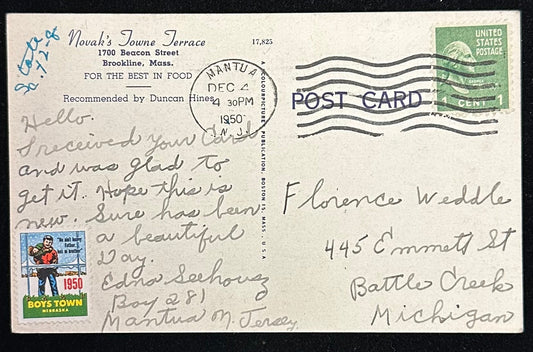 Novak's Towne Terrace
1700 Beacon Street
Brookline, Mass.
FOR THE BEST IN FOOD
Recommended by Duncan Hines
17,825
A COLOURPICTURE PUBLICATION, BOSTON 15, MASS., U.S.A.
12-8
MANTUA
DEC 4
4 30PM
1950
N.J.
POST CARD
UNITED
STATES
POSTAGE
1 CENT 1
Hello.
I received your Card
and was glad to
get it. Hope this is
new. Sure has been
a beautiful
Day.
Edna Seehousz
Box 281
Mantua N. Jersey
Florence Weddle
445 Emmett St
Battle Creek
Michigan
"He ain't heavy
Father..
he's m' brother"
1950
BOYS TOWN
NEBRASKA